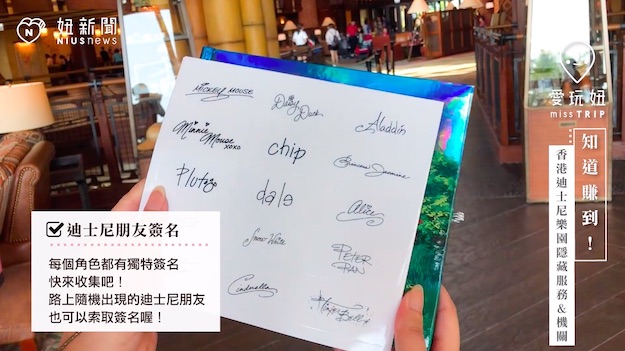 妞新聞
NIUSnews
愛玩妞
missTRIP
知道賺到！
香港迪士尼樂園隱藏服務&機關
Mickey Mouse
Daisy Duck
Aladdin
Minnie Mouse
xoxo
chip
Princess Jasmine
Pluto
dale
Alice
Snow White
PETER PAN
Cinderella
Tinker Bell
迪士尼朋友簽名
每個角色都有獨特簽名
快來收集吧！
路上隨機出現的迪士尼朋友
也可以索取簽名喔！